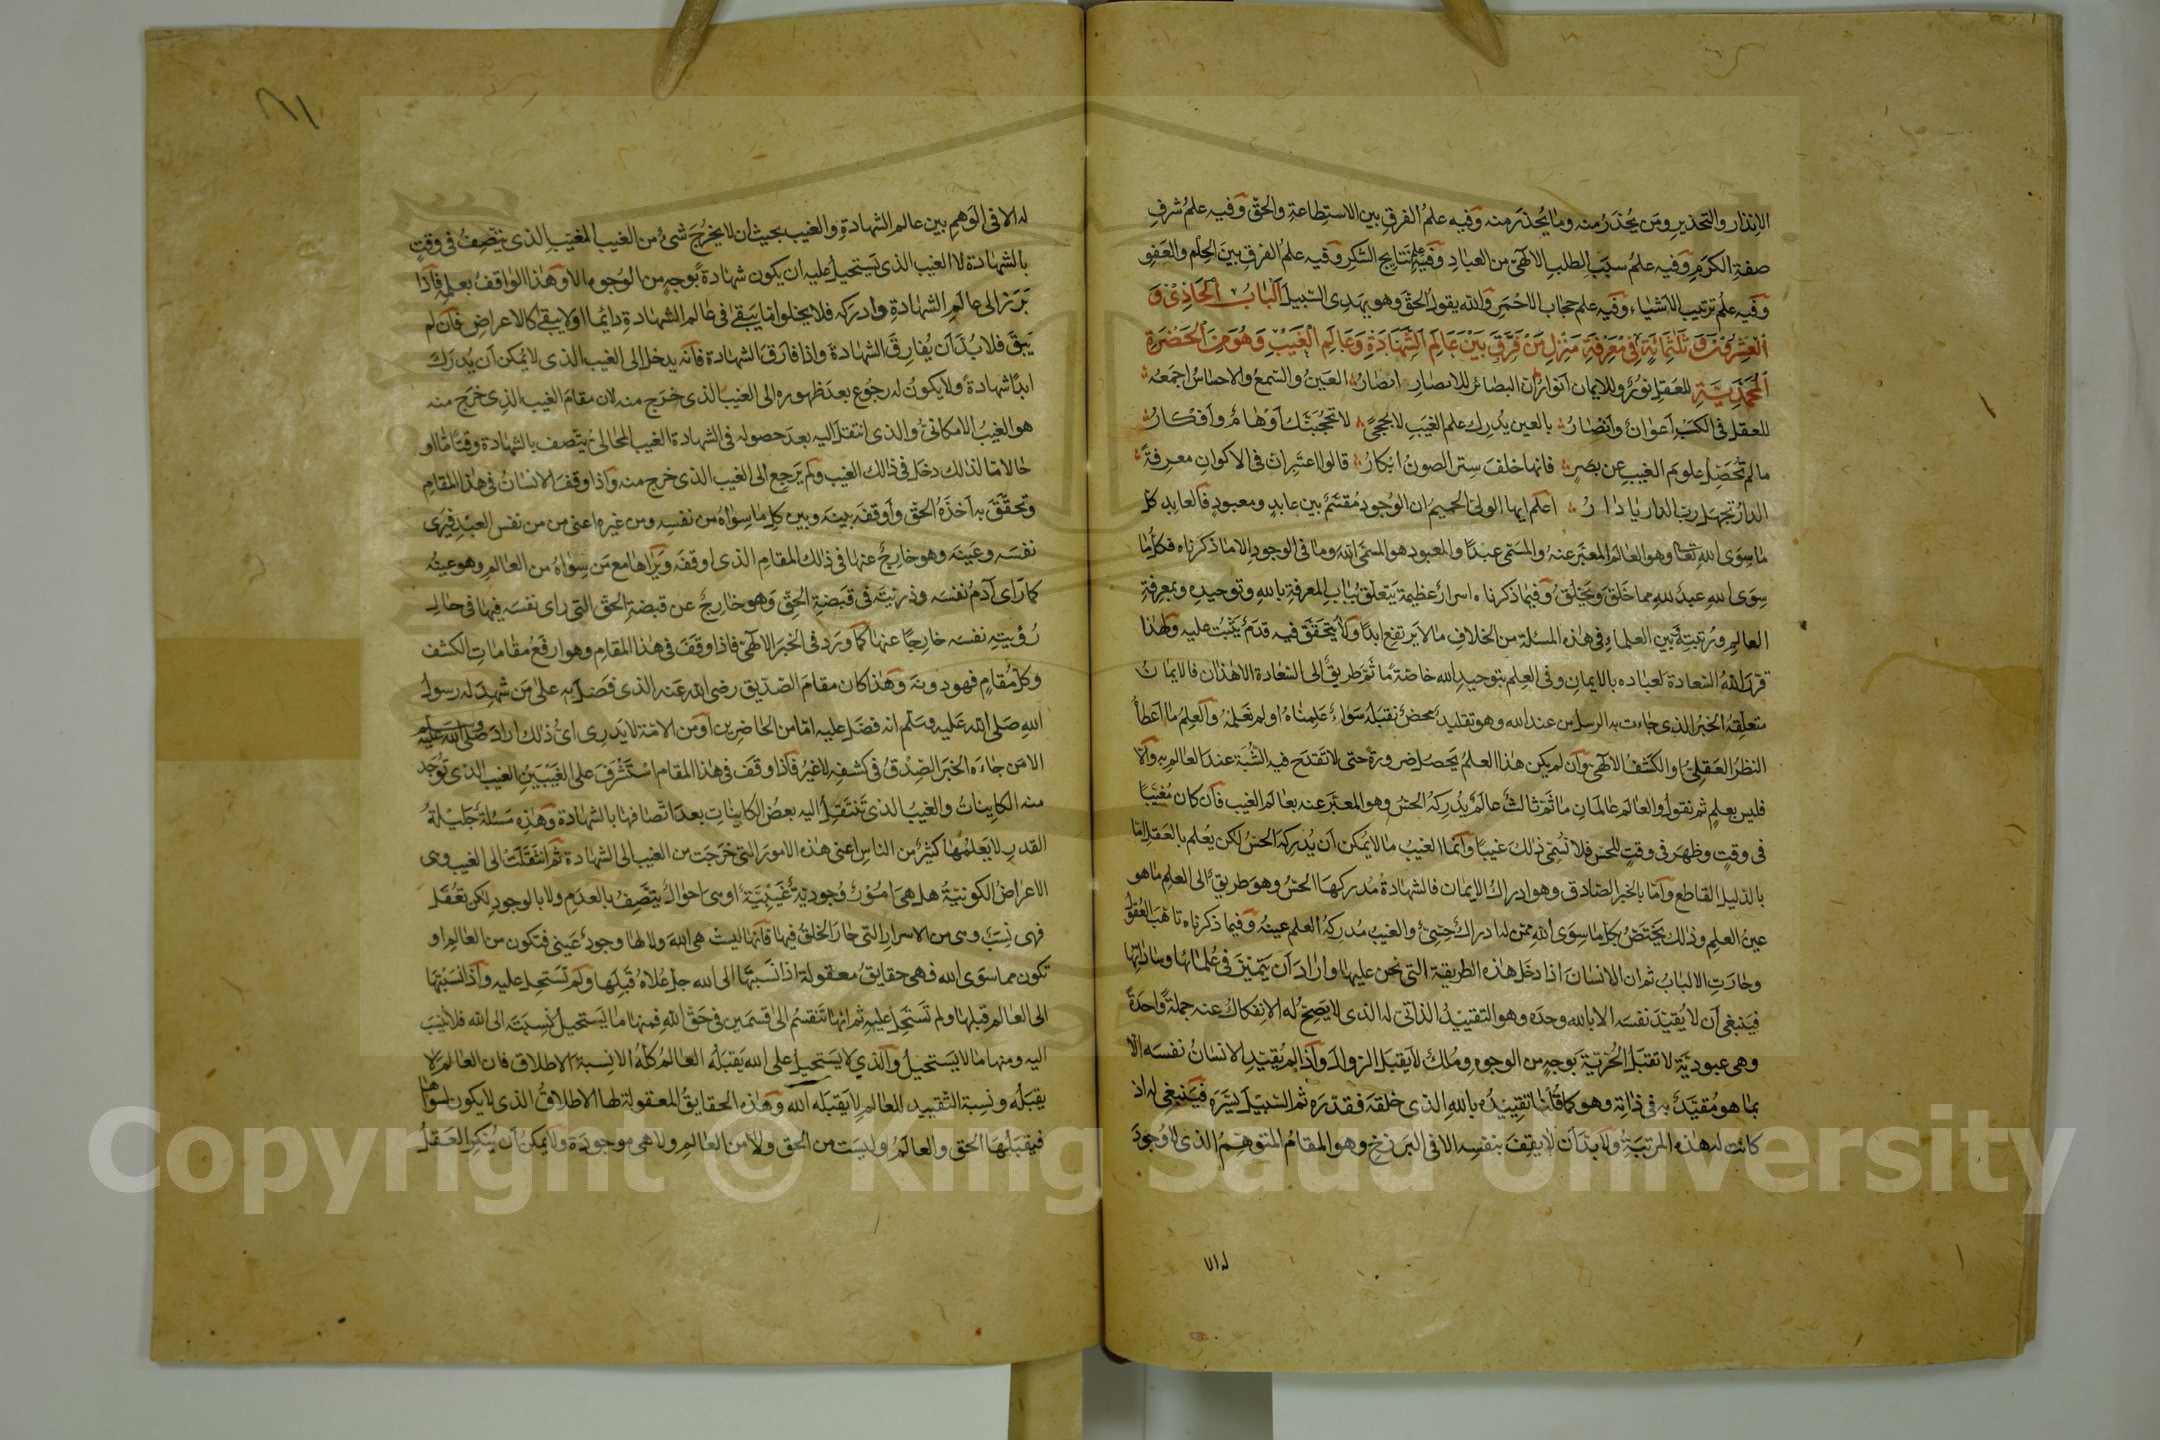 الانذار والتحذير ومن يُحذَر منه وما يُحذر منه وفيه علمُ الفرق بين الاستطاعة والحق وفيه علمُ شرف
صفة الكرم وفيه علمُ سبب الطلب الالهى من العباد وفيه علم نتايج الشكر وفيه علمُ الفرق بين الحلم والعفو
وفيه علم ترتيب الاشياء وفيه علم حجاب الاحمر والله يقول الحق وهو يهدى السبيل الباب الحادى و
العشرون وثلثمائة فى معرفة منزل من فرق بين عالم الشهادة وعالم الغيب وهو من الحضرة
المحمدية للعقل نور وللايمان انوار ان البصائر للابصار ابصار العين والسمع والاحساس اجمعه
للعقل فى الكسب اعوان وانصار بالعين يُدرك علم الغيب لا بحجى لا تحجبنّك اوهام وافكار
ما لم تُحصّل علوم الغيب عن بصر فانها خلف ستر الصون ابكار قالوا اعتبرات فى الاكوان معرفةً
الدار تجهل رب الدار يا دار اعلم ايها الولى الحميم ان الوجود مقسم بين عابد ومعبود فالعابد كل
ما سوى الله تعالى وهو العالم المعبّر عنه والمسمى عبدًا والمعبود هو المسمى الله وما فى الوجود الا ما ذكرناه فكل ما
سوى الله عبد لله مما خلق ويخلق وفيما ذكرناه اسرار عظيمة يتعلق بباب المعرفة بالله وتوحيده وبمعرفة
العالم ورتبته وبين العلماء فى هذه المسئلة من الخلاف ما لا يرتفع ابدًا ولا يتحقق فيه قدم يثبت عليه ولهذا
قرر الله السعادة لعباده بالايمان وفى العلم بتوحيد الله خاصةً ما ثم طريق الى السعادة الا هذان فالايمان
متعلقه الخبر الذى جاءت به الرسل من عند الله وهو تقليد محض نقبله سواء علمناه او لم نعلمه والعلم ما اعطاه
النظر العقلى او الكشف الالهى وان لم يكن هذا العلم يحصل ضرورة حتى لا تقدح فيه الشبه عند العالم به والا
فليس بعلم ثم نقول والعالم عالمان ما ثم ثالث عالم يُدركه الحس وهو المعبّر عنه بعالم الغيب فان كان مغيّبا
فى وقت وظهر فى وقت للحس فلا نسمى ذلك غيبا وانما الغيب ما لا يمكن ان يُدركه الحس لكن يُعلم بالعقل اما
بالدليل القاطع واما بالخبر الصادق وهو ادراك الايمان فالشهادة مُدركها الحس وهو طريق الى العلم ما هو
عين العلم وذلك يختص بكل ما سوى الله ممن له ادراك حسى والغيب مُدركه العلم عينه وفيما ذكرناه تاهت العقول
وحارت الالباب ثم ان الانسان اذا دخل هذه الطريقة التى نحن عليها واراد ان يتميز فى علمائها وساداتها
فينبغى ان لا يقيد نفسه الا بالله وحده وهو التقييد الذاتى له الذى لا يصح له الانفكاك عنه جملةً واحدةً
وهى عبودية لا تقبل الحُرية بوجه من الوجوه وملك لا يقبل الزوال واذا لم يقيد الانسان نفسه الا
بما هو مقيد به فى ذاته وهو كما قلنا تقييده بالله الذى خلقه فقدره ثم السبيل يسره فينبغى له اذ
كانت له هذه المرتبة ولا بد ان لا يقف بنفسه الا فى البرزخ وهو المقام المتوهم الذى لا وجود
له الا
له الا فى الوهم بين عالم الشهادة والغيب بحيث ان لا يخرج شئ من الغيب المغيّب الذى يتصف فى وقت
بالشهادة لا الغيب الذى يستحيل عليه ان يكون شهادةً بوجه من الوجوه الا وهذا الواقف بعلمه فاذا
برز الى عالم الشهادة وادركه فلا يخلوا اما يبقى فى عالم الشهادة دايمًا او لا يبقى كالاعراض فان لم
يبق فلا بد ان يفارق الشهادة واذا فارق الشهادة فانه يدخل الى الغيب الذى لا يمكن ان يُدرك
ابدًا شهادةً ولا يكون له رجوع بعد ظهوره الى الغيب الذى خرج منه لان مقام الغيب الذى خرج منه
هو الغيب الامكانى والذى انتقل اليه بعد حصوله فى الشهادة الغيب المحالى يتّصف بالشهادة وقتًا ما او
حالا ما لذلك دخل فى ذلك الغيب ولم يرجع الى الغيب الذى خرج منه واذا وقف الانسان فى هذا المقام
وتحقق به اخذه الحق واوقفه بينه وبين كل ما سواه من نفسه ومن غيره اعنى من من نفس العبد فيرى
نفسه وعينه وهو خارج عنها فى ذلك المقام الذى اوقفه ويراها مع من سواه من العالم وهو عينه
كما رأى آدم نفسه وذريته فى قبضة الحق وهو خارج عن قبضة الحق التى رأى نفسه فيها فى حال
رؤيته نفسه خارجًا عنها كما ورد فى الخبر الالهى فاذا وقف فى هذا المقام وهو ارفع مقامات الكشف
وكل مقام فهو دونه وهذا كان مقام الصديق رضى الله عنه الذى فضل به على من شهد له رسول
الله صلى الله عليه وسلم انه فضل عليه اما من الحاضرين او من الامة لا يدرى اى ذلك اراد صلى الله عليه وسلم
الا من جاءه الخبر الصدق فى كشفه لا غير فاذا وقف فى هذا المقام استشرف على الغيبين الغيب الذى توجد
منه الكاينات والغيب الذى تنتقل اليه بعض الكاينات بعد اتصافها بالشهادة وهذه مسئلة جليلة
القدر لا يعلمها كثير من الناس اعنى هذه الامور التى خرجت من الغيب الى الشهادة ثم انتقلت الى الغيب وهى
الاعراض الكونية هل هى امور وجودية غيبية او هى احوال يتصف بالعدم ولا بالوجود لكن تعقل
فهى نسب وهى من الاسرار التى حار الخلق فيها فانها ليست هى الله ولا لها وجود عينى فتكون من العالم او
تكون مما سوى الله فهى حقايق معقولة اذا نسبتها الى الله جل علاه قبلها ولم تستحل عليه واذا نسبتها
الى العالم قبلها ولم تستحل عليه ثم انها تنقسم الى قسمين فى حق الله فمنها ما يستحيل نسبته الى الله فلا ينسب
اليه ومنها ما لا يستحيل والذى لا يستحيل على الله يقبله العالم كله الا نسبة الاطلاق فان العالم لا
يقبله ونسبة التقييد للعالم لا يقبله الله وهذه الحقايق المعقولة لها الاطلاق الذى لا يكون لسواها
فيقبلها الحق والعالم وليست من الحق ولا من العالم ولا هى موجودة ولا يمكن ان ينكر العقل
Copyright © King Saud University